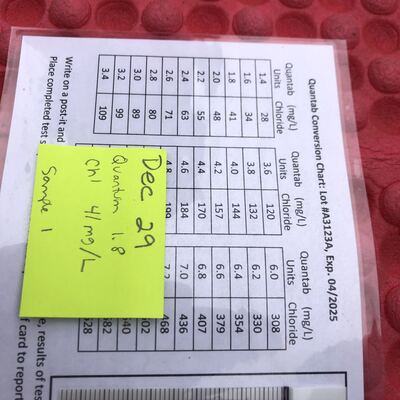 Quantab Conversion Chart: Lot #A3123A, Exp. 04/2025
Quantab (mg/L) Quantab (mg/L) Quantab (mg/L)
Units Chloride Units Chloride Units Chloride
1.4 28 3.6 120 6.0 308
1.6 34 3.8 132 6.2 330
1.8 41 4.0 144 6.4 354
2.0 48 4.2 157 6.6 379
2.2 55 4.4 170 6.8 407
2.4 63 4.6 184 7.0 436
2.6 71 4.8 199 7.2 468
2.8 80
3.0 89
3.2 99
3.4 109
Dec 29
Quantum 1.8
Chl 41 mg/L
Sample 1
Write on a post-it and
results of
Place completed test
card to report